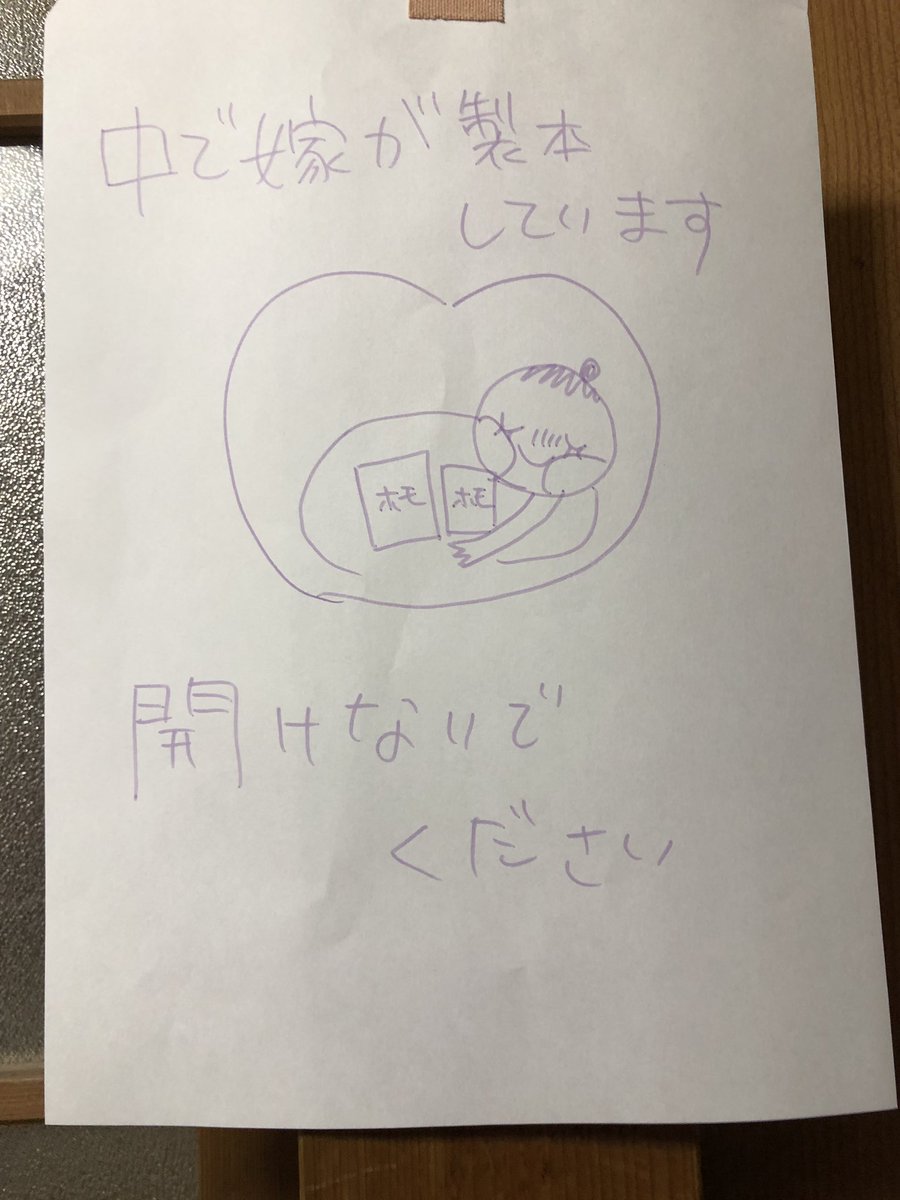 中で嫁が製本
しています
ホモ ホモ
開けないで
ください